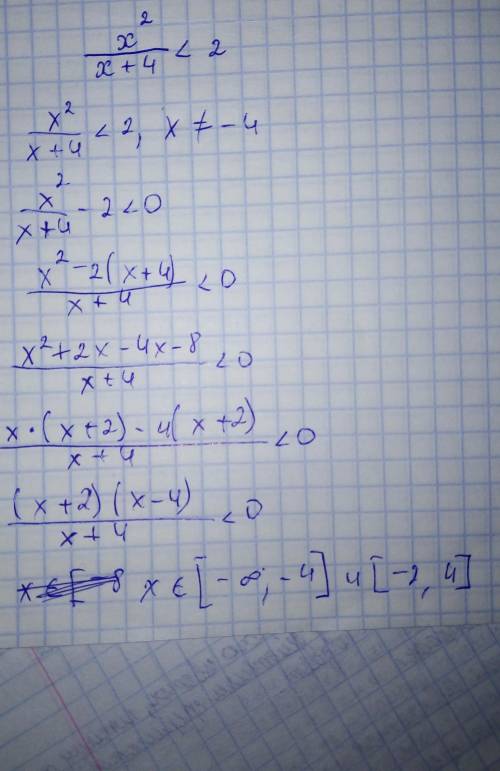 x²/(x+4) < 2
x²/(x+4) < 2, x ≠ -4
x²/(x+4) - 2 < 0
(x² - 2(x+4))/(x+4) < 0
(x² + 2x - 4x - 8)/(x+4) < 0
(x·(x+2) - 4(x+2))/(x+4) < 0
((x+2)(x-4))/(x+4) < 0
x ∈ [-∞; -4] и [-2, 4]